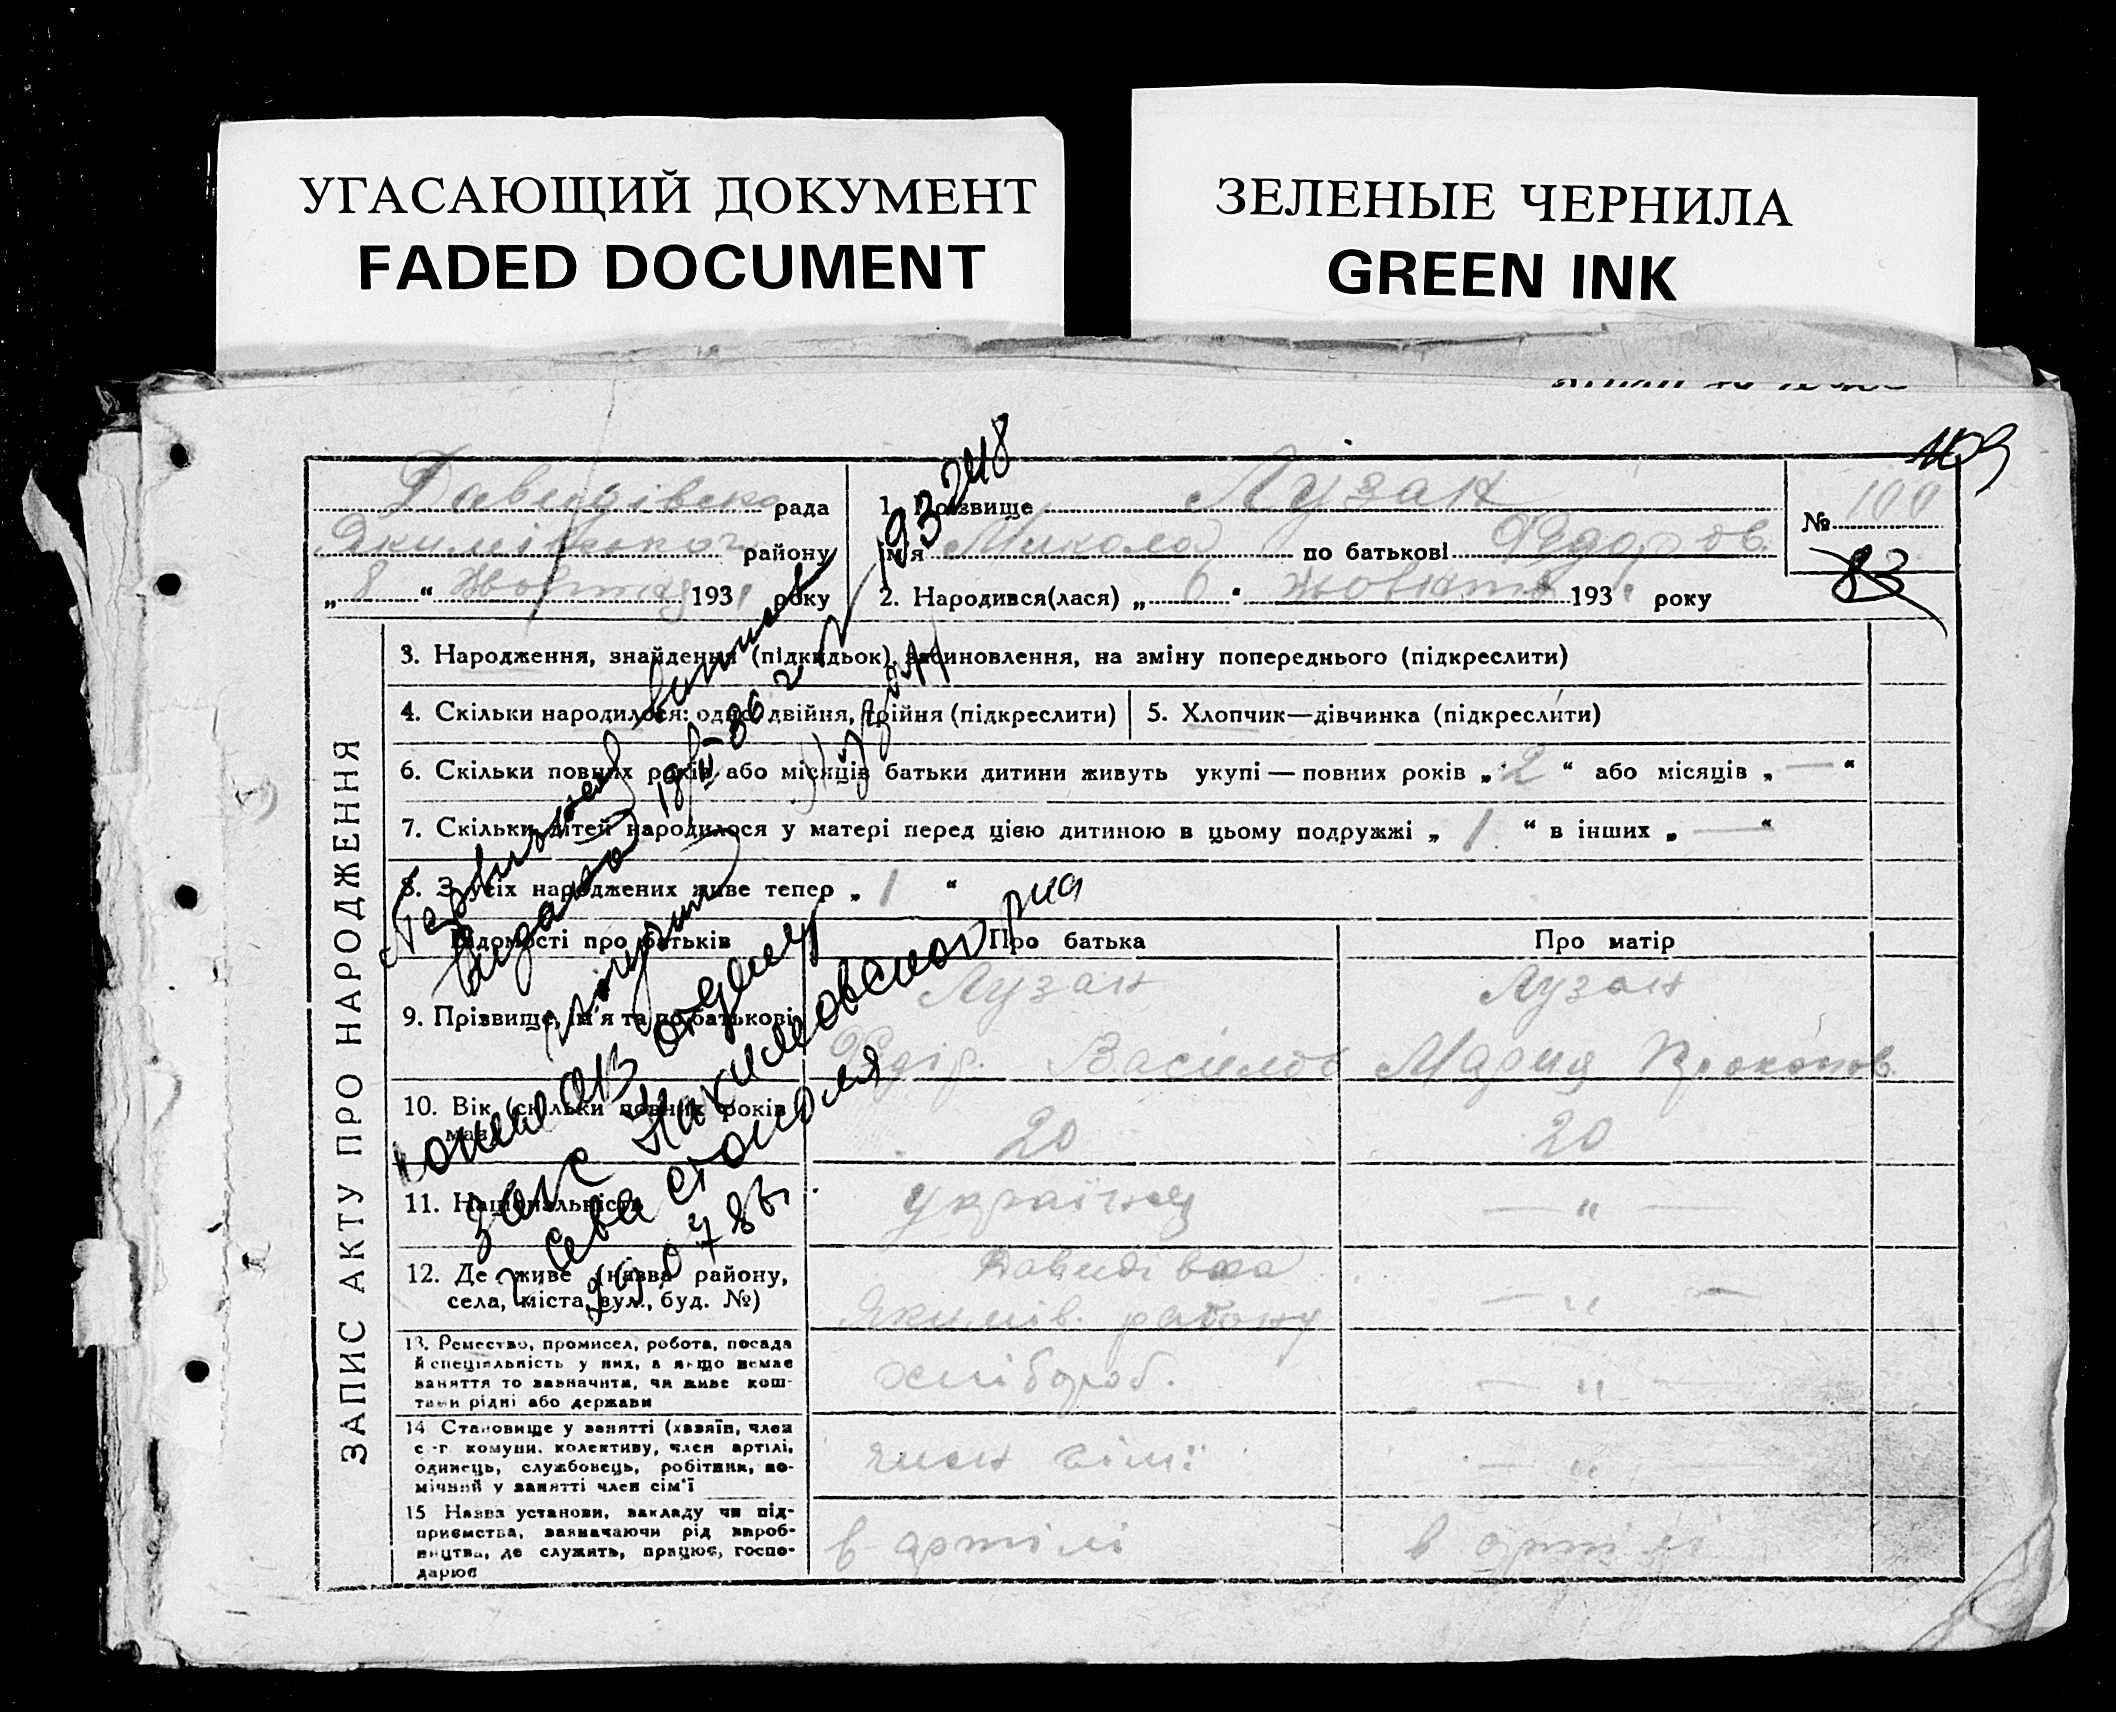 УГАСАЮЩИЙ ДОКУМЕНТ
FADED DOCUMENT
ЗЕЛЕНЫЕ ЧЕРНИЛА
GREEN INK
109
Давидівська рада
Якимівського району
„ 8 “ жовтня 1931 року
1. Прізвище Лузан
ім'я Микола по батькові Федоров.
2. Народився(лася) „ 6 “ жовтня 1931 року
№ 100
83
ЗАПИС АКТУ ПРО НАРОДЖЕННЯ
3. Народження, знайдення (підкидьок), всиновлення, на зміну попереднього (підкреслити)
4. Скільки народилося: одно, двійня, трійня (підкреслити)
5. Хлопчик—дівчинка (підкреслити)
6. Скільки повних років або місяців батьки дитини живуть укупі — повних років „ 2 “ або місяців „ — “
7. Скільки дітей народилося у матері перед цією дитиною в цьому подружжі „ 1 “ в інших „ — “
8. З усіх народжених живе тепер „ 1 “
Відомості про батьків
Про батька
Про матір
9. Прізвище, ім'я та по батькові
Лузан
Федір. Васильов
Лузан
Мария Прокопов.
10. Вік (скільки повних років має)
20
20
11. Національність
українці
— „ —
12. Де живе (назва району,
села, міста, вул., буд. №)
Давидівка
Якимів. району
— „ —
13. Ремество, промисел, робота, посада
й спеціяльність у них, а якщо немає
заняття то зазначити, чи живе кош-
тами рідні або держави
хлібороб.
— „ —
14 Становище у занятті (хазяїн, член
с.-г. комуни, колективу, член артілі,
одинець, службовець, робітник, по-
мічний у занятті член сім'ї
член сімї
— „ —
15 Назва установи, закладу чи під-
приємства, зазначаючи рід вироб-
ництва, де служить, працює, госпо-
дарює
в артілі
в артілі
18/II-86 г.
отделу
загс Нахимовского р-на
г. Севастополя